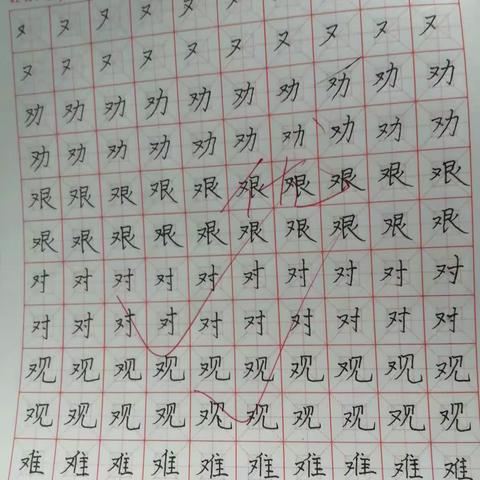 又又又又又又又又又又
又又又又又又又又又又
劝劝劝劝劝劝劝劝劝劝
劝劝劝劝劝劝劝劝劝劝
艰艰艰艰艰艰艰艰艰艰
艰艰艰艰艰艰艰艰艰艰
对对对对对对对对对对
对对对对对对对对对对
观观观观观观观观观观
观观观观观观观观观观
难难难难难难难难难难